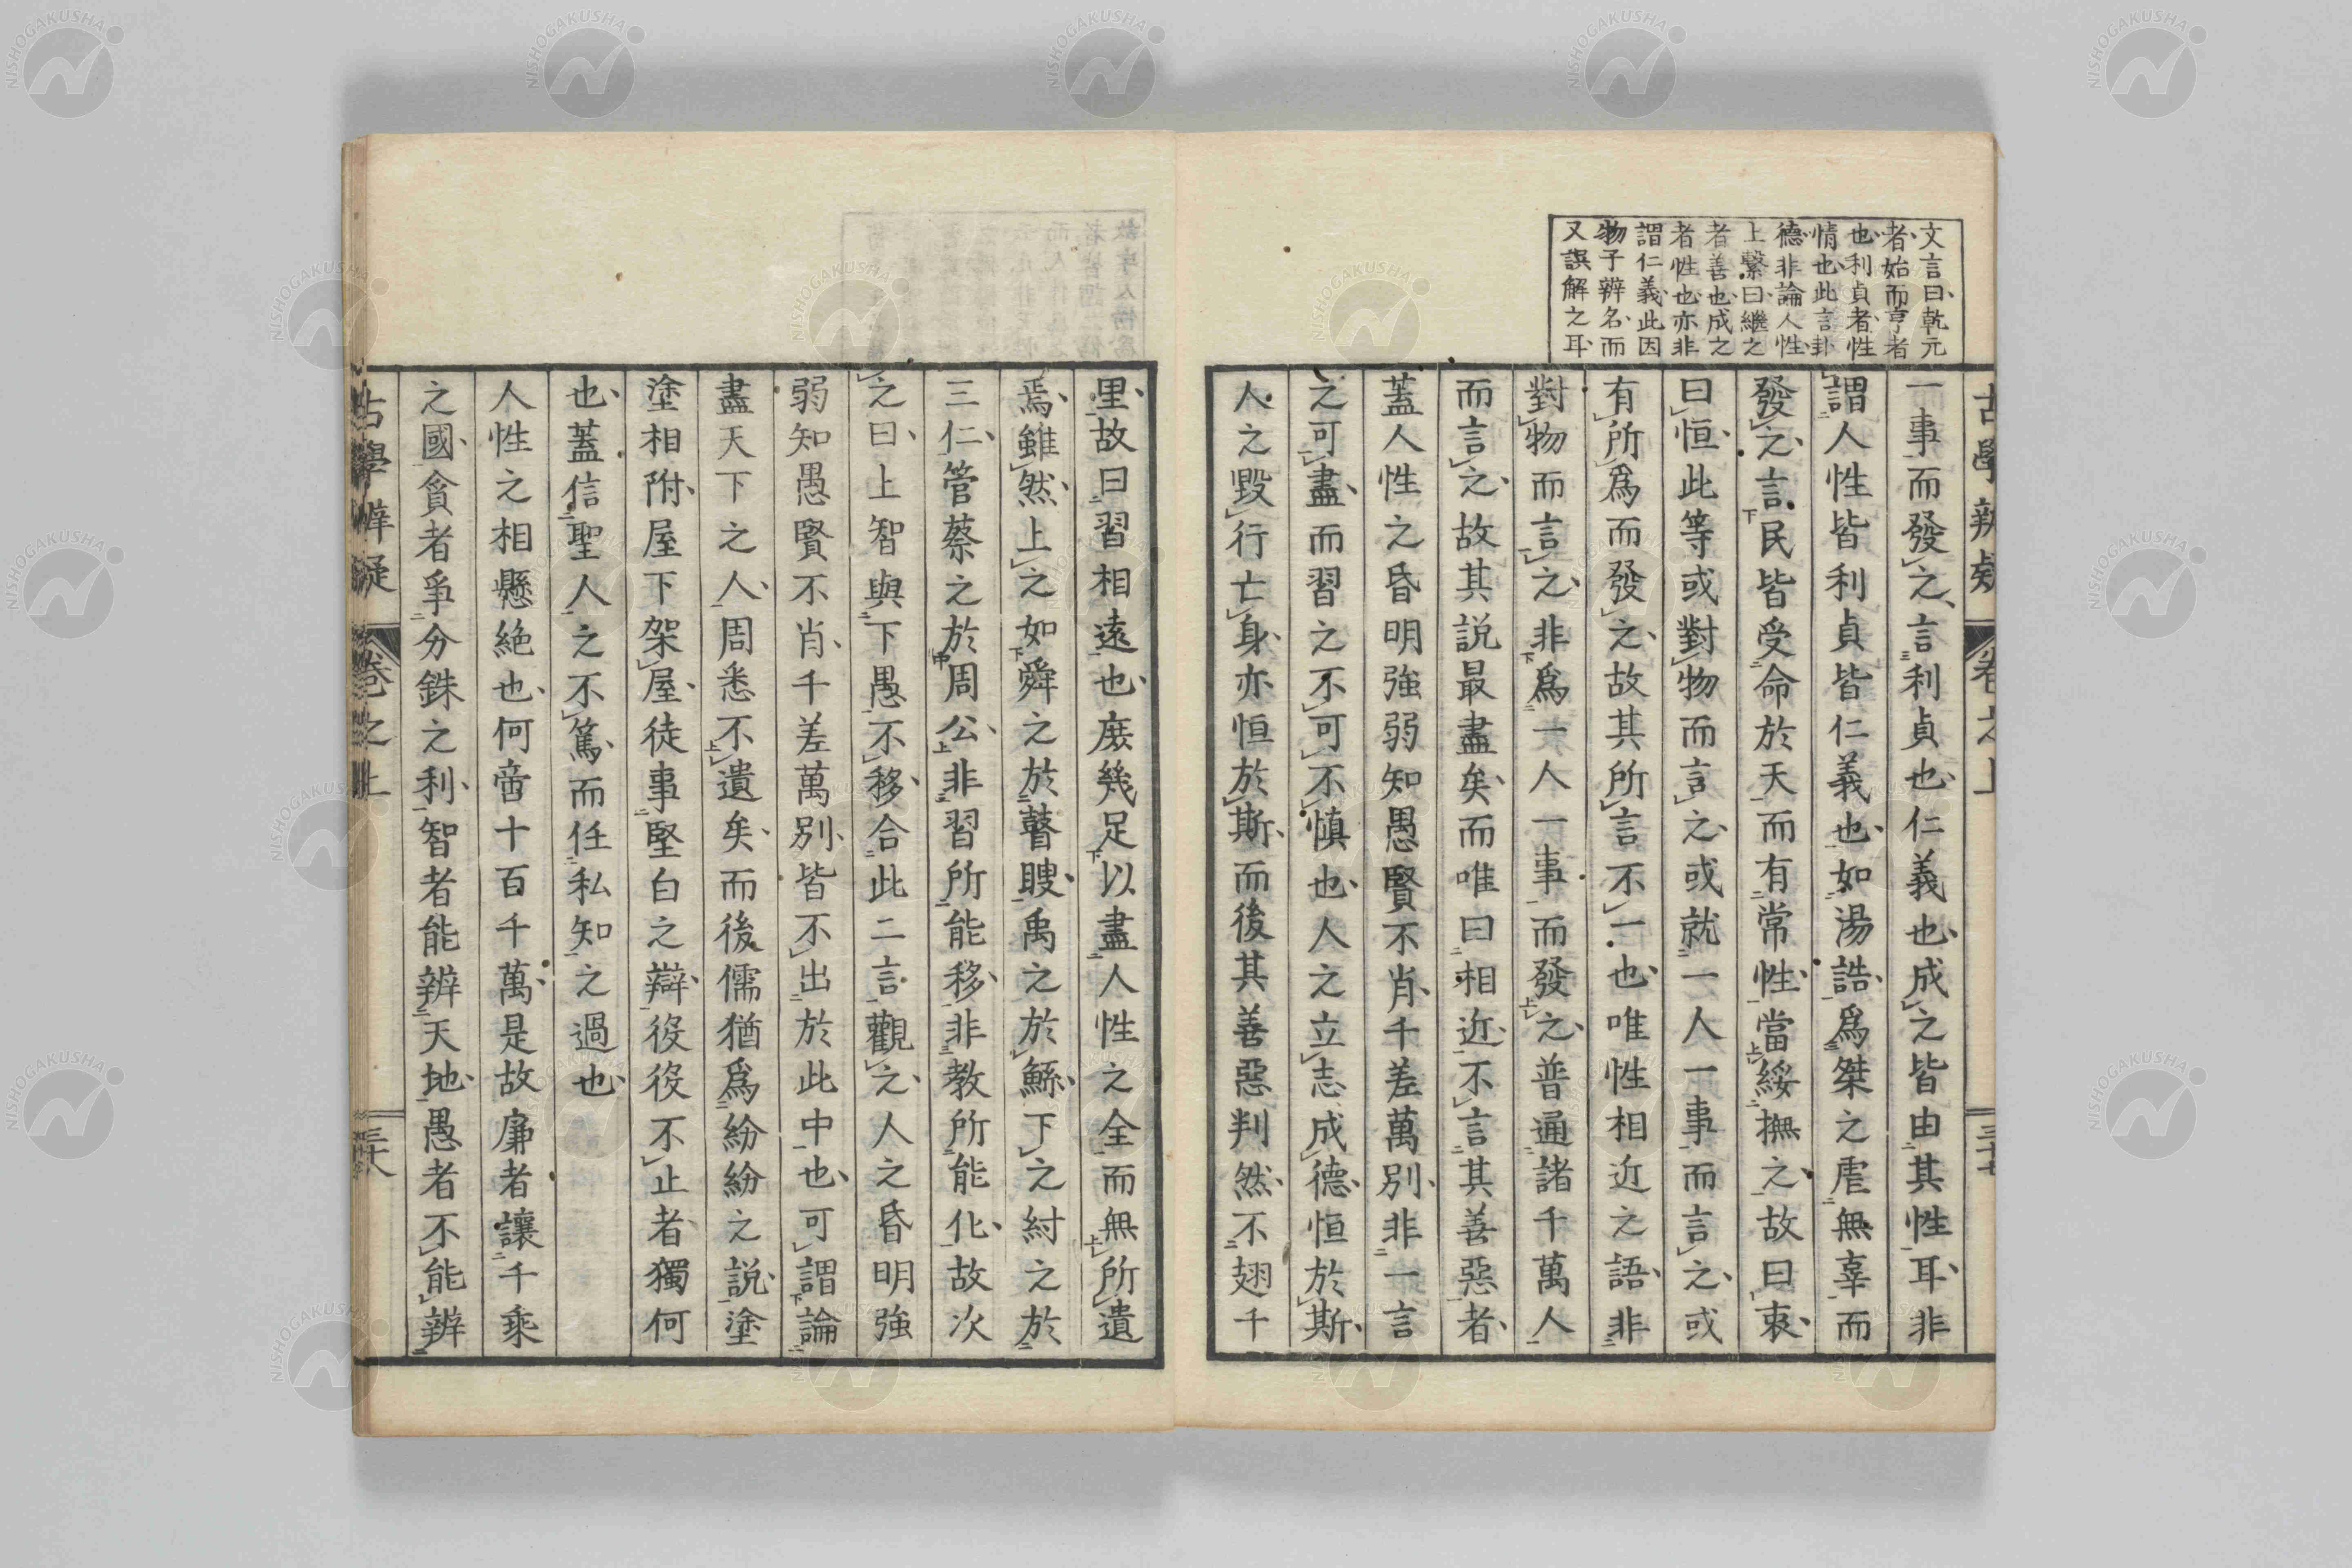 文言曰乾元
者始而亨者
也利貞者性
情也此言卦
德非論人性
上繫曰繼之
者善也成之
者性也亦非
謂仁義此因
物子辨名而
又誤解之耳
古學辨疑 卷之上 三十七
一事而發之言利貞也仁義也成之皆由其性耳非
謂人性皆利貞皆仁義也如湯誥爲桀之虐無辜而
發之言民皆受命於天而有常性當綏撫之故曰衷
曰恒此等或對物而言之或就一人一事而言之或
有所爲而發之故其所言不一也唯性相近之語非
對物而言之非爲一人一事而發之普通諸千萬人
而言之故其說最盡矣而唯曰相近不言其善惡者
蓋人性之昏明強弱知愚賢不肖千差萬別非一言
之可盡而習之不可不慎也人之立志成德恒於斯
人之毀行亡身亦恒於斯而後其善惡判然不翅千
里故曰習相遠也庶幾足以盡人性之全而無所遺
焉雖然上之如舜之於瞽瞍禹之於鯀下之紂之於
三仁管蔡之於周公非習所能移非教所能化故次
之曰上智與下愚不移合此二言觀之人之昏明強
弱知愚賢不肖千差萬別皆不出於此中也可謂論
盡天下之人周悉不遺矣而後儒猶爲紛紛之說塗
塗相附屋下架屋徒事堅白之辯役役不止者獨何
也蓋信聖人之不篤而任私知之過也
人性之相懸絶也何啻十百千萬是故廉者讓千乘
之國貪者爭分銖之利智者能辨天地愚者不能辨
古學辨疑 卷之上 三十八
NISHOGAKUSHA